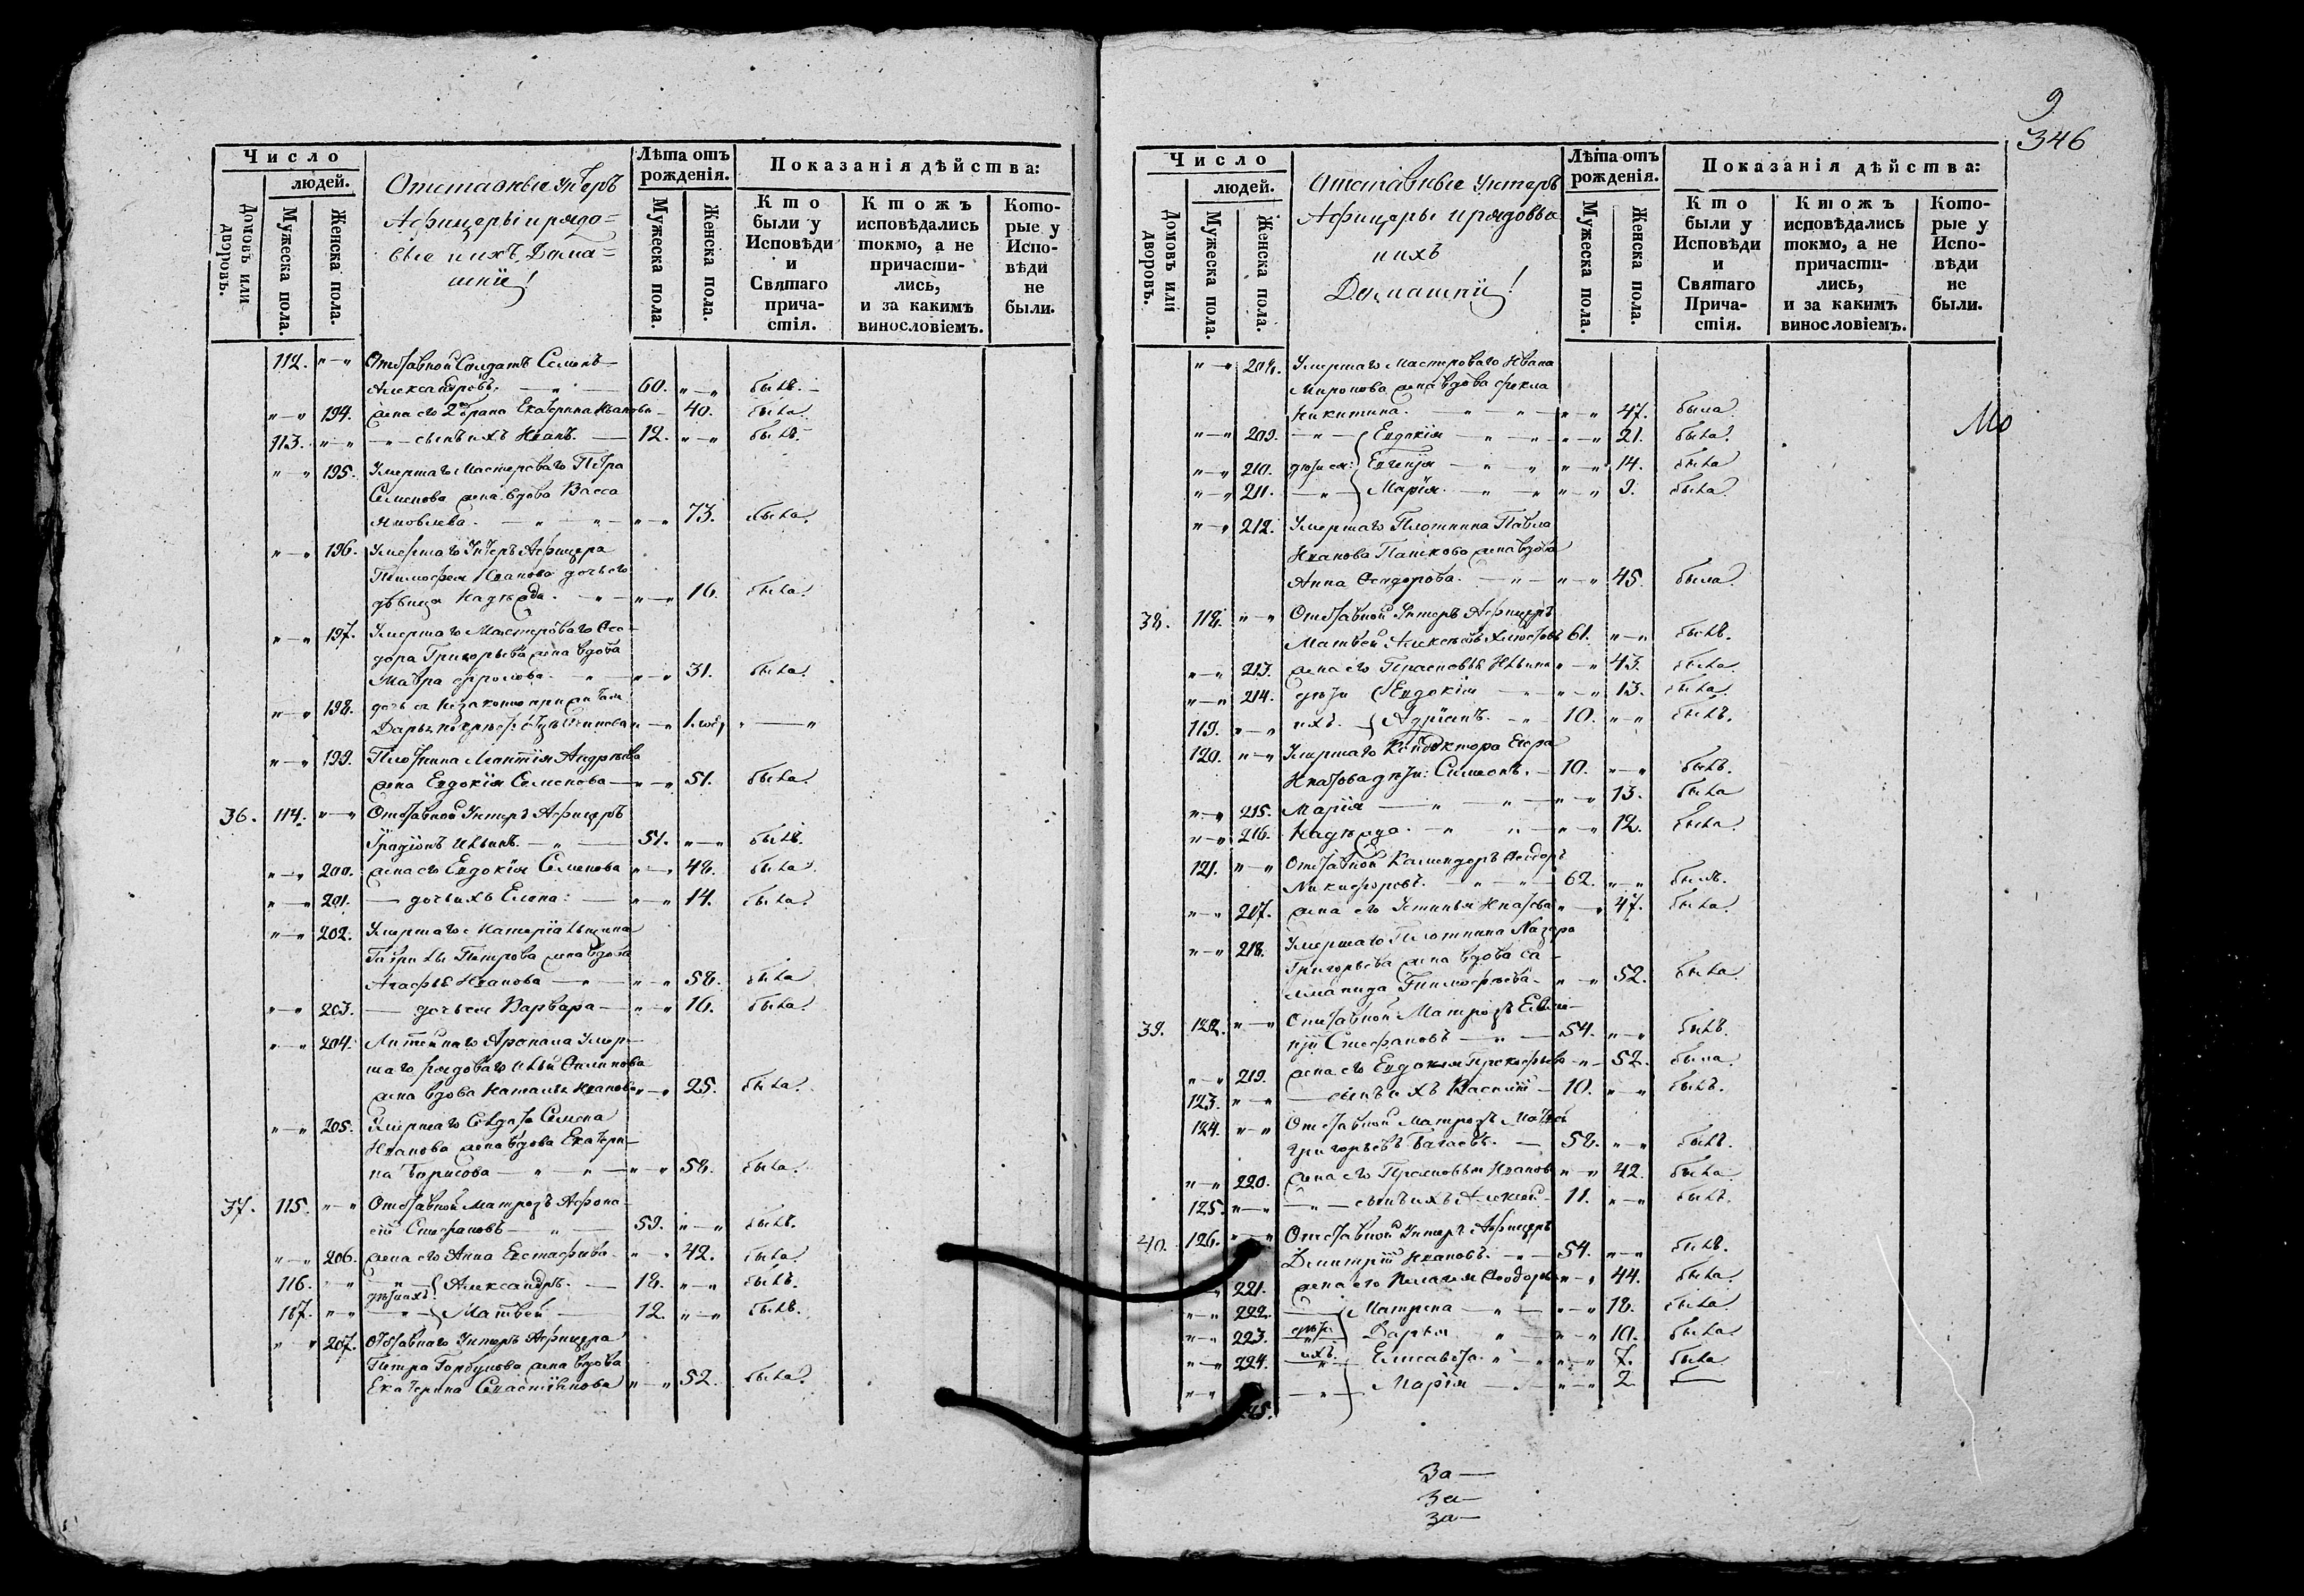 Число
людей.
Домовъ или дворовъ.
Мужеска пола.
Женска пола.
Отставные Унтеръ
Афицеры и рядо=
вые и ихъ Дома=
шніи!
Лѣта отъ рожденія.
Мужеска пола.
Женска пола.
Показанія дѣйства:
Кто были у Исповѣди и Святаго причастія.
Ктожъ исповѣдались токмо, а не причастились, и за какимъ винословіемъ.
Которые у Исповѣди не были.
112. „—„ Отставной Солдатъ Семенъ
Александровъ. 60. „—„ былъ.
„—„ 194. жена его 2го брака Екатерина Иванова 40. была.
113. „—„ сынъ ихъ Иванъ. 12. „—„ былъ.
„—„ 195. Умершаго Мастероваго Петра
Семенова жена вдова Васса
Яковлева. „—„ 73. была.
„—„ 196. Умершаго Унтеръ Афицера
Тимофея Иванова дочь его
дѣвица Надежда. „—„ 16. была.
„—„ 197. Умершаго Мастероваго Фео-
дора Григорьева жена вдова
Мавра Фролова. „—„ 31. была.
„—„ 198. дочь ея незаконно прижитая
Дарья „—„ 1.
„—„ 199. Плотника Андрѣева
жена Евдокія Семенова „—„ 51. была.
36. 114. „—„ Отставной Унтеръ Афицеръ
Ѵродіонъ Ильинъ. 51. „—„ былъ.
„—„ 200. жена его Евдокія Семенова „—„ 48. была.
„—„ 201. дочь ихъ Елена: „—„ 14. была.
„—„ 202. Умершаго
Гаврилы Петрова жена вдова
Агафья Иванова „—„ 58. была.
„—„ 203. дочь ея Варвара „—„ 16. была.
„—„ 204. Умер-
шаго рядоваго Ильи Осипова
жена вдова Наталья Иванова „—„ 25. была.
„—„ 205. Умершаго Солдата Семена
Иванова жена вдова Екатери-
на Борисова „—„ 58. была.
37. 115. „—„ Отставной Матрозъ Афона-
сій Стефановъ 59. „—„ былъ.
„—„ 206. жена его Анна Естафьева „—„ 42. была.
116. „—„ дѣти ихъ: Александръ. 18. „—„ былъ.
117. „—„ Матвей 12. „—„ былъ.
„—„ 207. Отставнаго Унтеръ Афицера
Петра Горбунова жена вдова
Екатерина Севастьянова „—„ 52. была.
9
346
Число
людей.
Домовъ или дворовъ.
Мужеска пола.
Женска пола.
Отставные Унтеръ
Афицеры и рядовые
и ихъ
Домашніи!
Лѣта отъ рожденія.
Мужеска пола.
Женска пола.
Показанія дѣйства:
Кто были у Исповѣди и Святаго Причастія.
Ктожъ исповѣдались токмо, а не причастились, и за какимъ винословіемъ.
Которые у Исповѣди не были.
„—„ 208. Умершаго Мастероваго Ивана
Миронова жена вдова Фекла
Никитина. „—„ 47. была.
„—„ 209. Евдокія „—„ 21. была.
„—„ 210. дѣти ея: Евгенія „—„ 14. была
„—„ 211. Марія. „—„ 9. была.
„—„ 212. Умершаго Плотника Павла
Иванова Пашкова жена вдова
Анна Феодорова. „—„ 45. была.
38. 118. „—„ Отставной Унтеръ Афицеръ
Матвей Алексѣевъ 61. „—„ былъ.
„—„ 213. жена его Прасковья Ильина „—„ 43. была.
„—„ 214. дѣти Евдокія „—„ 13. была.
119. „—„ ихъ. Адріанъ. 10. „—„ былъ.
120. „—„ Умершаго Кондуктора Егора
Игнатова дѣти: Симеонъ. 10. „—„ былъ.
„—„ 215. Марія „—„ 13. была
„—„ 216. Надежда. „—„ 12. была.
121. „—„ Отставной Феодоръ
Никифоровъ. 62. „—„ былъ.
„—„ 217. жена его Устинья Игнатова „—„ 47. была.
„—„ 218. Умершаго Плотника Назара
Григорьева жена вдова Са-
ломанида Тимофѣева. „—„ 52. была.
39. 122. „—„ Отставной Матрозъ
Стефановъ 54. „—„ былъ.
„—„ 219. жена его Евдокия Прокофьева „—„ 52. была.
123. „—„ сынъ ихъ Василій 10. „—„ былъ.
124. „—„ Отставной Матрозъ Матвей
Григорьевъ 58. „—„ былъ.
„—„ 220. жена его Прасковья Иванова „—„ 42. была.
125. „—„ сынъ ихъ Алексей 11. „—„ былъ.
40. 126. „—„ Отставной Унтеръ Афицеръ
Димитрій Ивановъ. 54. „—„ былъ.
221. жена его Пелагея Феодорова „—„ 44. была.
„—„ 222. Матрена „—„ 18. была.
„—„ 223. дѣти Дарья „—„ 10. была.
„—„ 224. ихъ. Елисавета. „—„ 7. была
„—„ Марія „—„ 2
Мо
За—
За—
За—